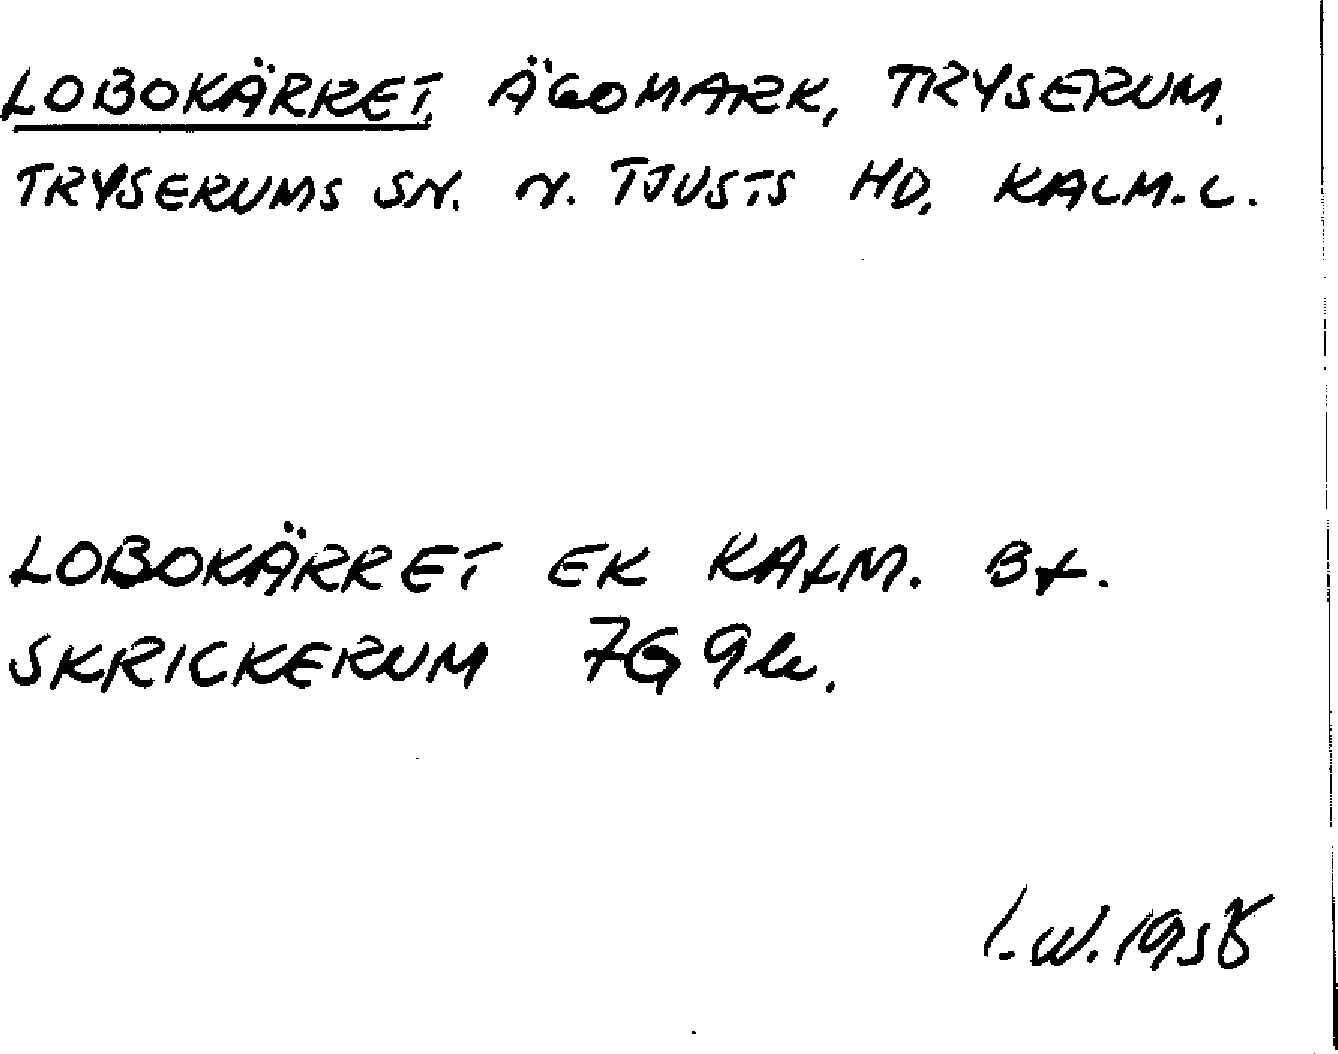 LOBOKÄRRET, ÄGOMARK, TRYSERUM,
TRYSERUMS SN. N. TJUSTS HD, KALM. L.
LOBOKÄRRET EK KALM. Bf.
SKRICKERUM 7G 9b.
I.W. 1958